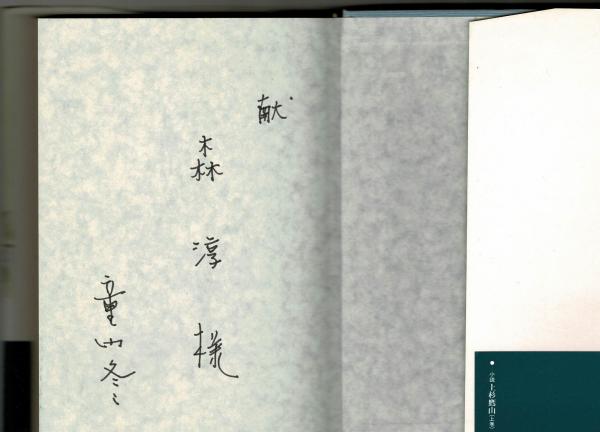 献
森淳様
童門冬二
小説 上杉鷹山(上巻)